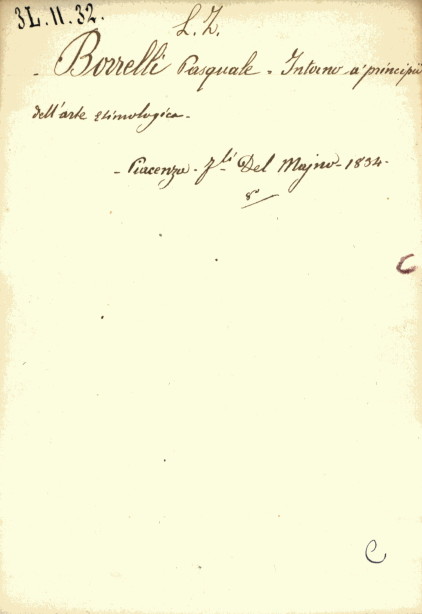 3L.11.32.
L. Z.
- Borrelli Pasquale - Intorno a' principii
dell'arte etimologica -
- Piacenza - f.lli Del Majno - 1834 -
8°
C
C